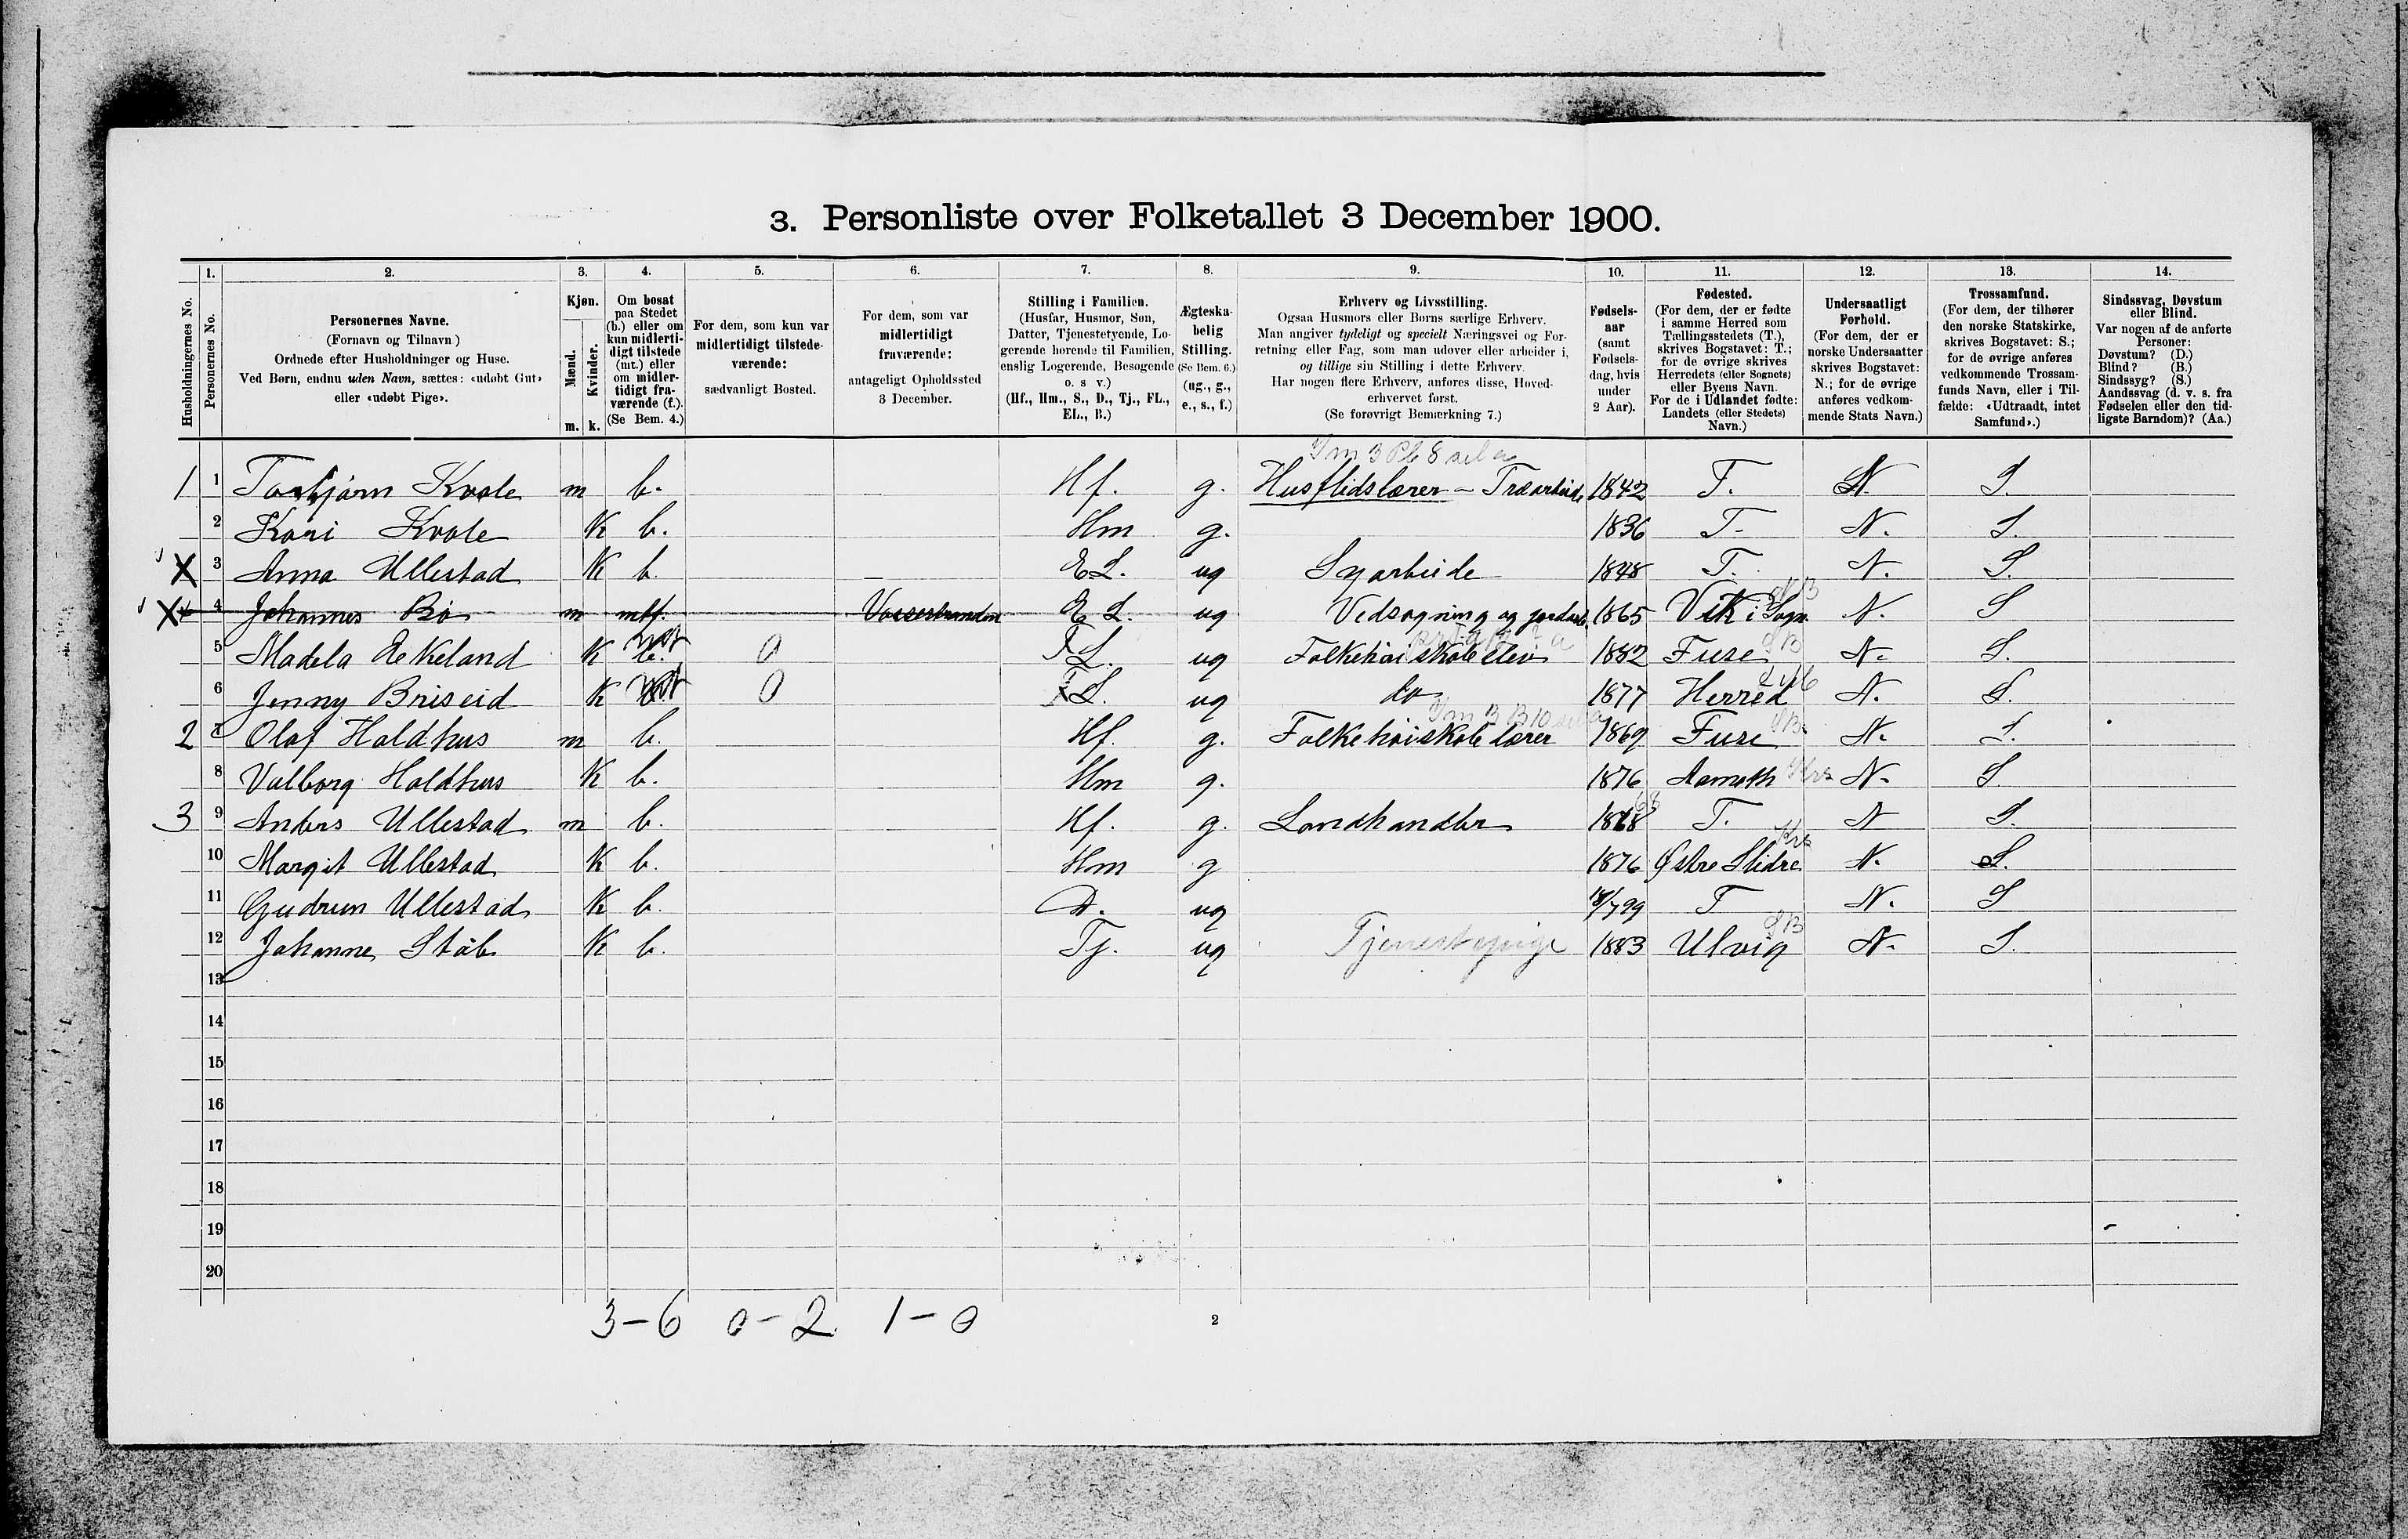 3. Personliste over Folketallet 3 December 1900.
Husholdningernes No.
1.
Personernes No.
2.
Personernes Navne.
(Fornavn og Tilnavn)
Ordnede efter Husholdninger og Huse.
Ved Børn, endnu uden Navn, sættes: «udøbt Gut»
eller «udøbt Pige».
3.
Kjøn.
Mænd.
Kvinder.
m. k.
4.
Om bosat
paa Stedet
(b.) eller om
kun midlerti-
digt tilstede
(mt.) eller
om midler-
tidigt fra-
værende (f.).
(Se Bem. 4.)
5.
For dem, som kun var
midlertidigt tilstede-
værende:
sædvanligt Bosted.
6.
For dem, som var
midlertidigt
fraværende:
antageligt Opholdssted
3 December.
7.
Stilling i Familien.
(Husfar, Husmor, Søn,
Datter, Tjenestetyende, Lo-
gerende hørende til Familien,
enslig Logerende, Besøgende
o. s v.)
(Hf., Hm., S., D., Tj., FL.,
EL., B.)
8.
Ægteska-
belig
Stilling.
(Se Bem. 6.)
(ug., g.,
e., s., f.)
9.
Erhverv og Livsstilling.
Ogsaa Husmors eller Børns særlige Erhverv.
Man angiver tydeligt og specielt Næringsvei og For-
retning eller Fag, som man udøver eller arbeider i,
og tillige sin Stilling i dette Erhverv.
Har nogen flere Erhverv, anføres disse, Hoved-
erhvervet først.
(Se forøvrigt Bemærkning 7.)
10.
Fødsels-
aar
(samt
Fødsels-
dag, hvis
under
2 Aar).
11.
Fødested.
(For dem, der er fødte
i samme Herred som
Tællingsstedets (T.),
skrives Bogstavet: T.;
for de øvrige skrives
Herredets (eller Sognets)
eller Byens Navn.
For de i Udlandet fødte:
Landets (eller Stedets)
Navn.)
12.
Undersaatligt
Forhold.
(For dem, der er
norske Undersaatter
skrives Bogstavet:
N.; for de øvrige
anføres vedkom-
mende Stats Navn.)
13.
Trossamfund.
(For dem, der tilhører
den norske Statskirke,
skrives Bogstavet: S.;
for de øvrige anføres
vedkommende Trossam-
funds Navn, eller i Til-
fælde: «Udtraadt, intet
Samfund».)
14.
Sindssvag, Døvstum
eller Blind.
Var nogen af de anførte
Personer:
Døvstum? (D.)
Blind? (B.)
Sindssyg? (S.)
Aandssvag (d. v. s. fra
Fødselen eller den tid-
ligste Barndom)? (Aa.)
1 1 Torbjørn Kvale m b. Hf. g. Husflidslærer - Træarbeide 1842 T. N. S.
2 Kari Kvale K b. Hm g. 1836 T. N. S.
X 3 Anna Ullestad K b. EL. ug Syarbeide 1848 T. N. S.
X 4 Johannes Bø m Vossestranden EL. ug Vedsagning og 1865 Vik i Sogn N. S
5 Madela K 0 FL. ug Folkehøiskoleelev 1882 Fuse SB N. S.
6 Jenny Briseid K 0 FL. ug do 1877 Herred N. S.
2 7 Olaf Holdhus m b. Hf. g. Folkehøiskolelærer 1869 Fuse SB N. S.
8 Valborg Holdhus K b. Hm g. 1876 N. S.
3 9 Anders Ullestad m b. Hf. g. Landhandler 1868 T. N S.
10 Margit Ullestad K b. Hm g 1876 Østre Slidre N. S.
11 Gudrun Ullestad K b. D. ug 18/7 99 T N. S
12 Johanne K b. Tj. ug Tjenestepige 1883 Ulvig SB N. S.
13
14
15
16
17
18
19
20
3-6 0-2 1-0
2